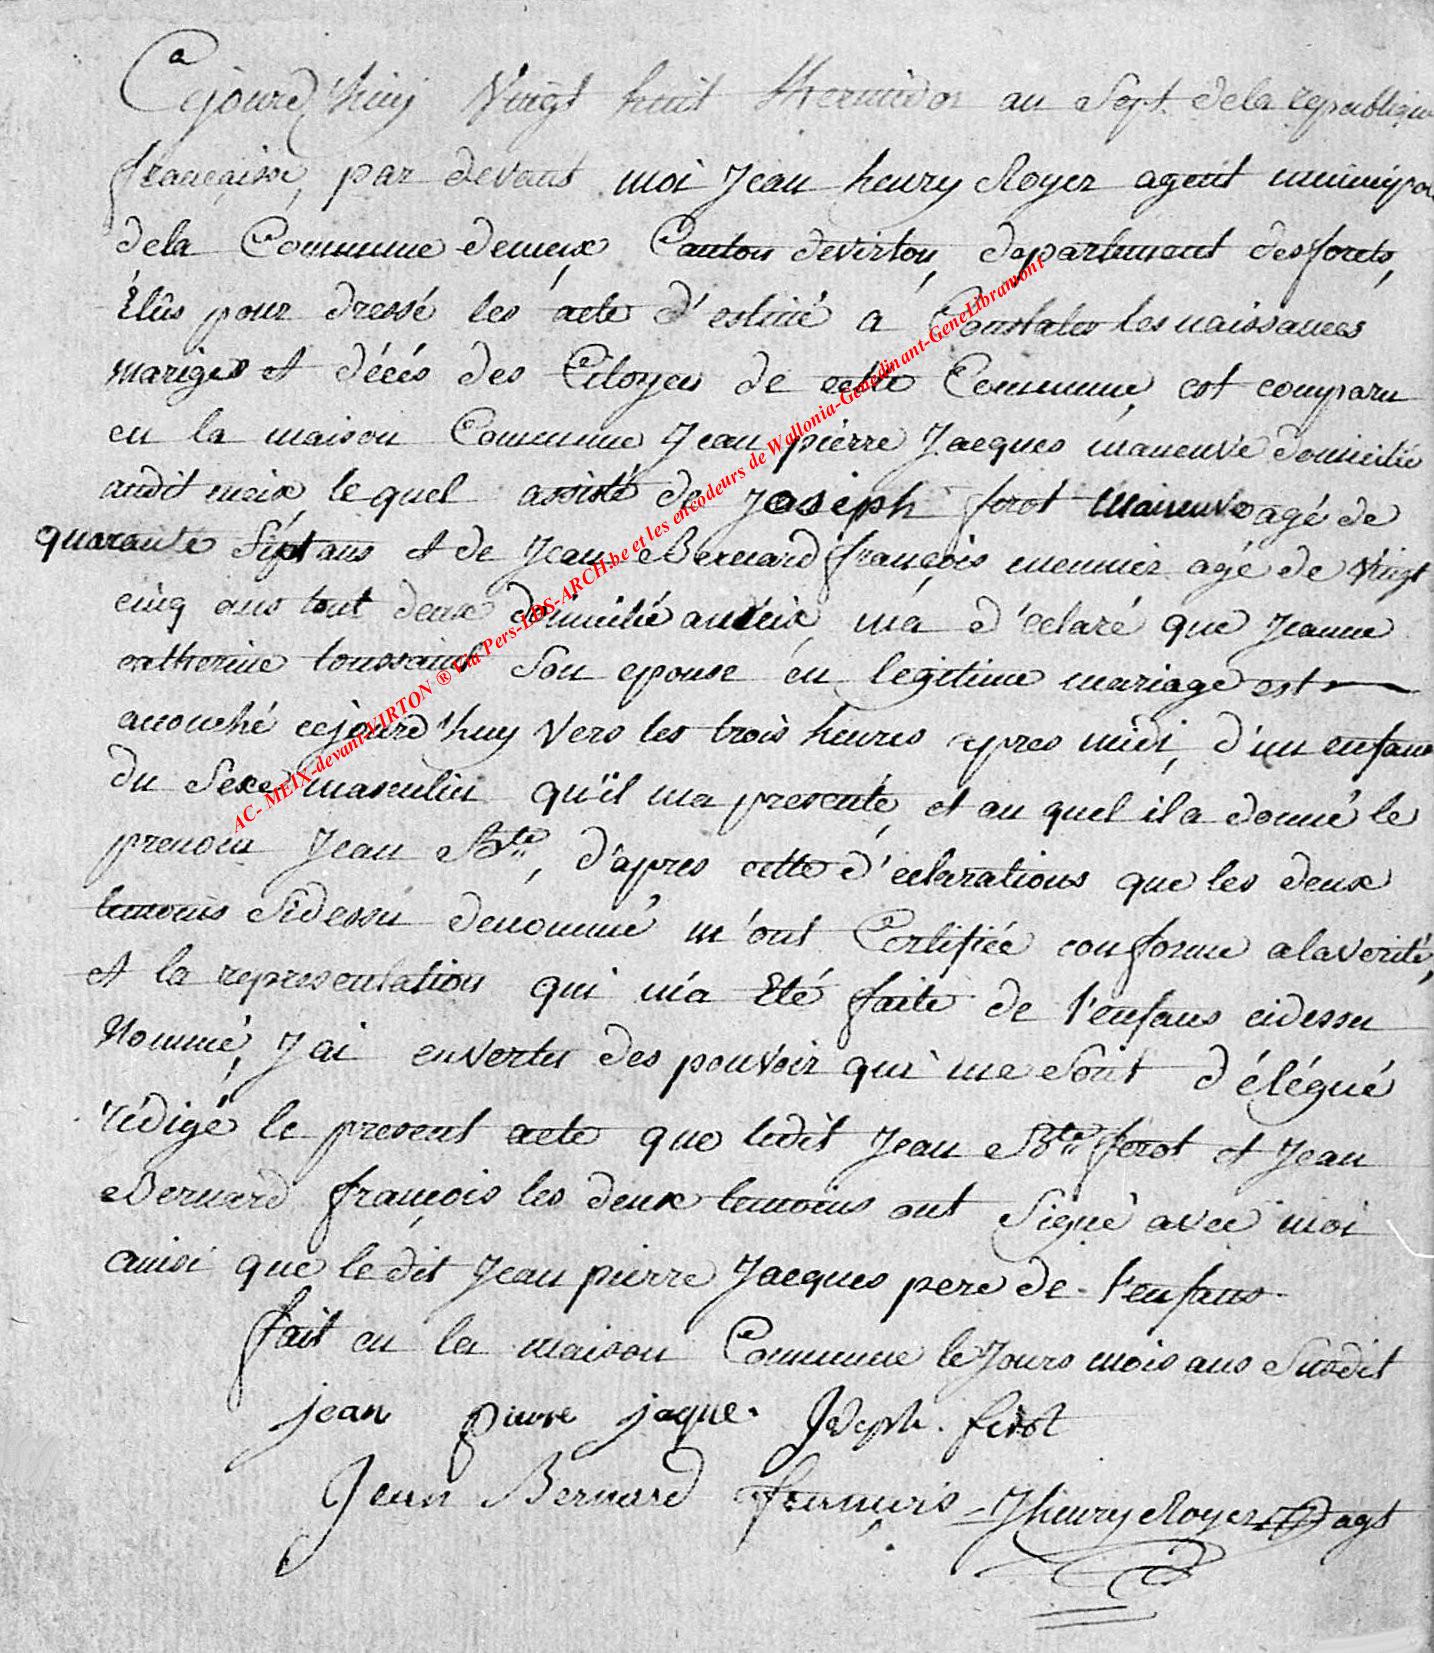 Cejourd'huy Vingt huit thermidor an Sept. dela republique
francaise, par devant moi Jean henry Royer agent municipal
dela Commune demeix Canton devirton, departement desforets,
Elûs pour dressé les acte d'estiné a Constater les naissances
mariges et décés des Citoyen de cette Commune, est comparu
en la maison Commune Jean pierre Jacques maneuvre domicilié
audit meix, le quel assisté de Joseph ferot Maneuvre agé de
quarante Sept ans et de Jean Bernard françois meunier agé de Vingt
cinq ans tout deux domicilié audit meix, m'a d'eclaré que Jeanne
catherine toussaint Son epouse en legitime mariage est
acouché cejourd'huy Vers les trois heures apres midi, d'un enfans
du Sexe masculin qu'il ma presenté, et au quel il a donné le
prenom Jean Bte, d'apres cette d'eclarations que les deux
temoins Sidessu denommé m'ont Certifiée conforme alaverité,
et la representation qui m'a Eté faite de l'enfans cidessu
Nommé, J'ai envertu des pouvoir qui me Sont d'élégué
rédigé le present acte que ledit Jean Bte ferot et Jean
Bernard françois les deux temoins ont Signé avec moi
ainsi que le dit Jean pierre Jacques pere de l'enfans
fait en la maison Commune le Jours mois ans Susdit
jean pierre jaque. Joseph. ferot
Jean Bernard françois JhenryRoyer agt
AC- MEIX-devant-VIRTON ® Via Pers-LDS-ARCH.be et les encodeurs de Wallonia-Genedinant-GeneLibramont